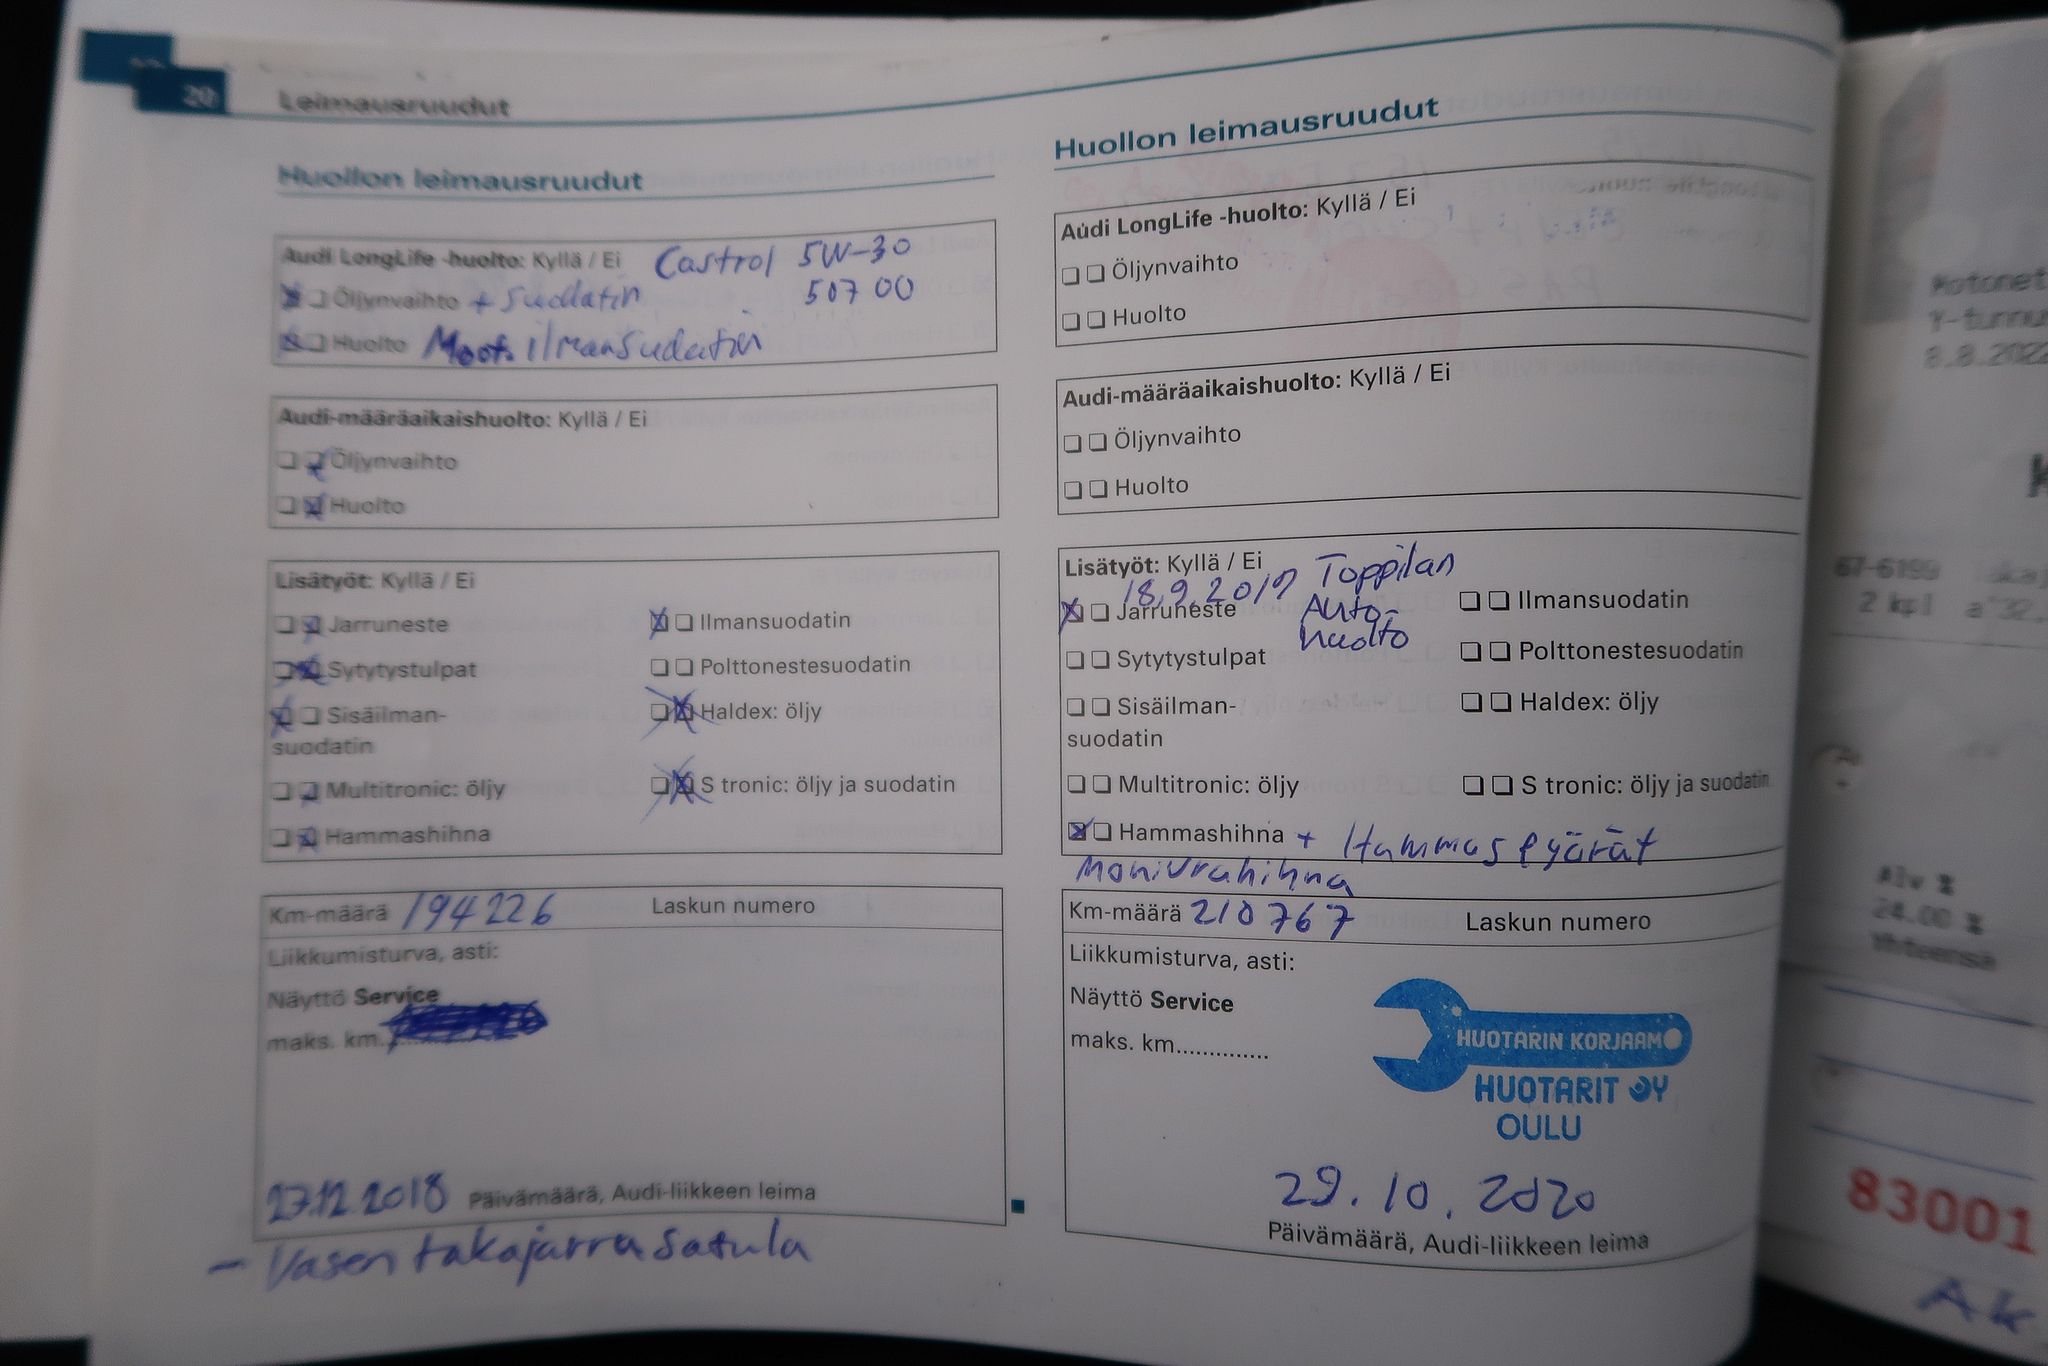 20
Leimausruudut
Huollon leimausruudut
Audi LongLife -huolto: Kyllä / Ei Castrol 5W-30
Öljynvaihto + Suodatin 507 00
Huolto Moot. ilmansudatin
Audi-määräaikaishuolto: Kyllä / Ei
Öljynvaihto
Huolto
Lisätyöt: Kyllä / Ei
Jarruneste
Ilmansuodatin
Sytytystulpat
Polttonestesuodatin
Sisäilman-
suodatin
Haldex: öljy
Multitronic: öljy
S tronic: öljy ja suodatin
Hammashihna
Km-määrä 194226 Laskun numero
Liikkumisturva, asti:
Näyttö Service
maks. km.
27.12.2018 Päivämäärä, Audi-liikkeen leima
- Vasen takajarru satula
Huollon leimausruudut
Audi LongLife -huolto: Kyllä / Ei
Öljynvaihto
Huolto
Audi-määräaikaishuolto: Kyllä / Ei
Öljynvaihto
Huolto
Lisätyöt: Kyllä / Ei Toppilan
18.9.2019 Auto-
Jarruneste huolto
Ilmansuodatin
Sytytystulpat
Polttonestesuodatin
Sisäilman-
suodatin
Haldex: öljy
Multitronic: öljy
S tronic: öljy ja suodatin
Hammashihna + Hammaspyörät
Moniurahihna
Km-määrä 210767 Laskun numero
Liikkumisturva, asti:
Näyttö Service
maks. km..............
HUOTARIN KORJAAMO
HUOTARIT OY
OULU
29.10.2020
Päivämäärä, Audi-liikkeen leima
Motonet
Y-tunnu
8.8.2022
67-6199
2 kpl a 32,
Alv %
24.00 %
Yhteensä
83001
Ak